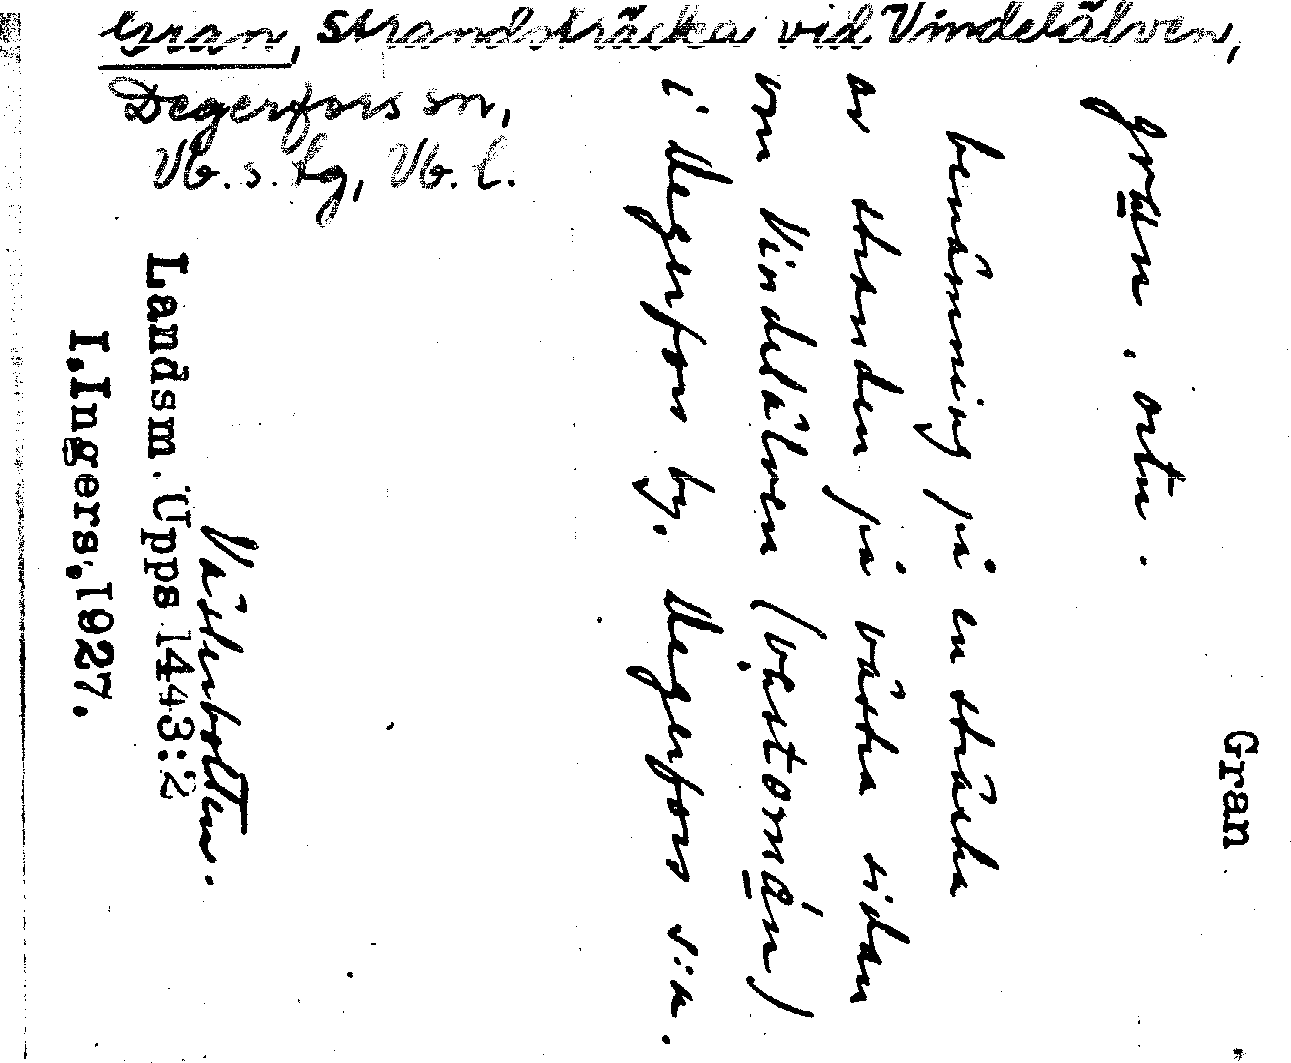 Gran, Strandsträcka vid Vindelälven,
Degerfors sn,
Vb. s. tg, Vb. l.
Gran
ortn.
benämning på en sträcka
av stranden på västra sidan
om Vindelälven
i Degerfors by. Degerfors s:n.
Västerbotten.
Landsm. Upps 1443:2
I. Ingers, 1927.